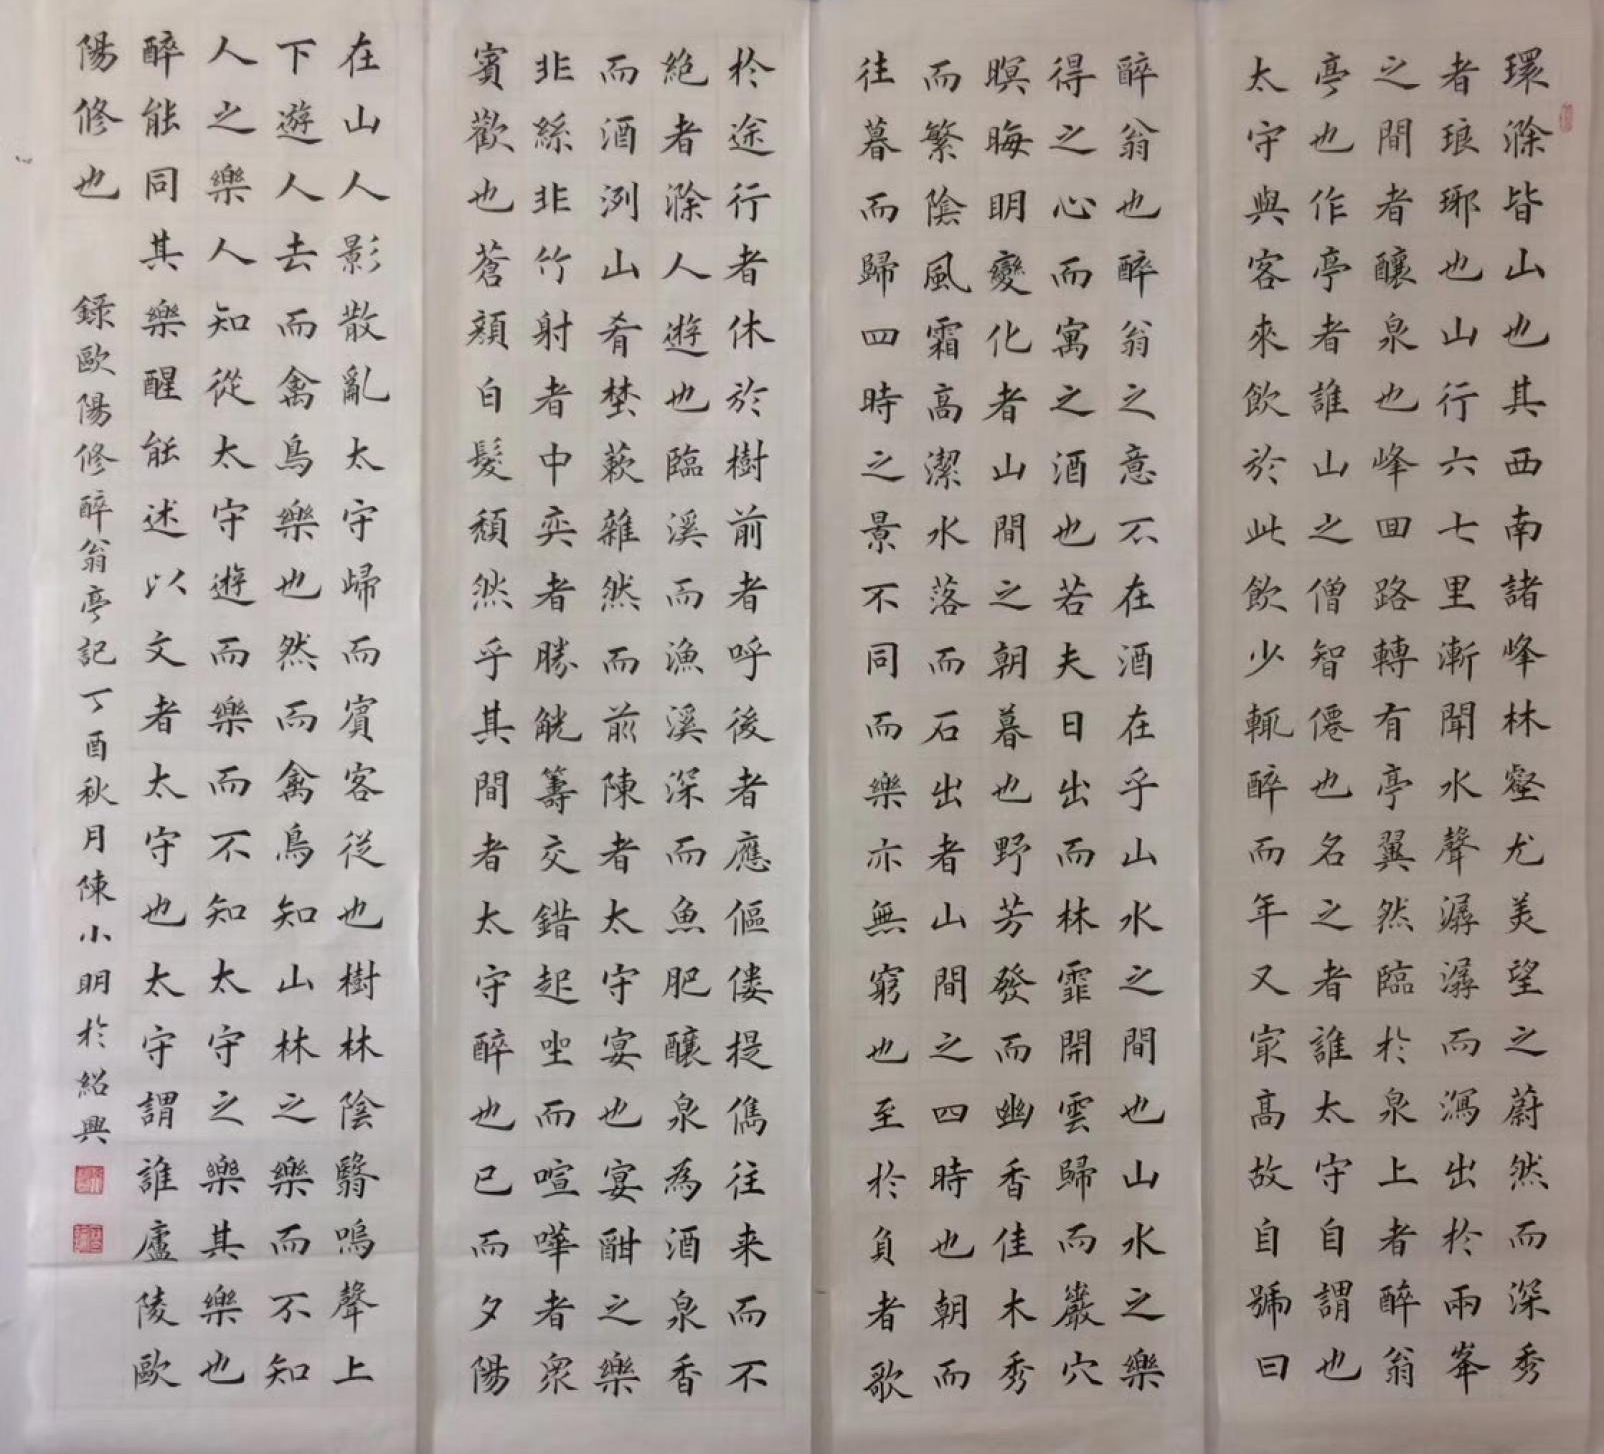 環滁皆山也其西南諸峰林壑尤美望之蔚然而深秀
者琅琊也山行六七里漸聞水聲潺潺而瀉出於兩峯
之間者釀泉也峰回路轉有亭翼然臨於泉上者醉翁
亭也作亭者誰山之僧智僊也名之者誰太守自謂也
太守與客來飲於此飲少輒醉而年又最高故自號曰
醉翁也醉翁之意不在酒在乎山水之間也山水之樂
得之心而寓之酒也若夫日出而林霏開雲歸而巖穴
暝晦明變化者山間之朝暮也野芳發而幽香佳木秀
而繁陰風霜高潔水落而石出者山間之四時也朝而
往暮而歸四時之景不同而樂亦無窮也至於負者歌
於途行者休於樹前者呼後者應傴僂提攜往来而不
絕者滁人遊也臨溪而漁溪深而魚肥釀泉為酒泉香
而酒洌山肴埜蔌雜然而前陳者太守宴也宴酣之樂
非絲非竹射者中奕者勝觥籌交錯起坐而喧嘩者眾
賓歡也蒼顏白髮頹然乎其間者太守醉也已而夕陽
在山人影散亂太守歸而賓客從也樹林陰翳鳴聲上
下遊人去而禽鳥樂也然而禽鳥知山林之樂而不知
人之樂人知從太守遊而樂而不知太守之樂其樂也
醉能同其樂醒能述以文者太守也太守謂誰廬陵歐
陽修也
錄歐陽修醉翁亭記丁酉秋月陳小明於紹興